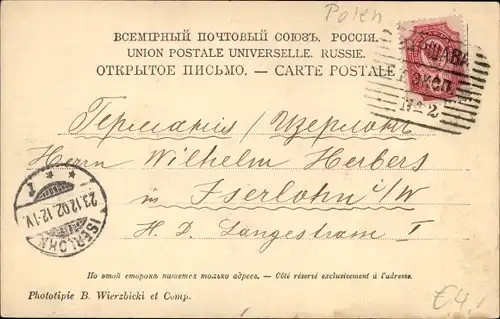 Polen
ВСЕМІРНЫЙ ПОЧТОВЫЙ СОЮЗЪ. РОССІЯ.
UNION POSTALE UNIVERSELLE. RUSSIE.
ОТКРЫТОЕ ПИСЬМО. — CARTE POSTALE
ВАРШАВА
ЭКСП.
№ 2
Германія / Изерлонъ
Herrn Wilhelm Herbers
in Iserlohn i/W
H. D. Langestram I
ISERLOHN
23.12.02.12-1V.
1
По этой сторонѣ пишется только адресъ. — Côté réservé exclusivement à l'adresse.
Phototipie B. Wierzbicki et Comp.
€4,